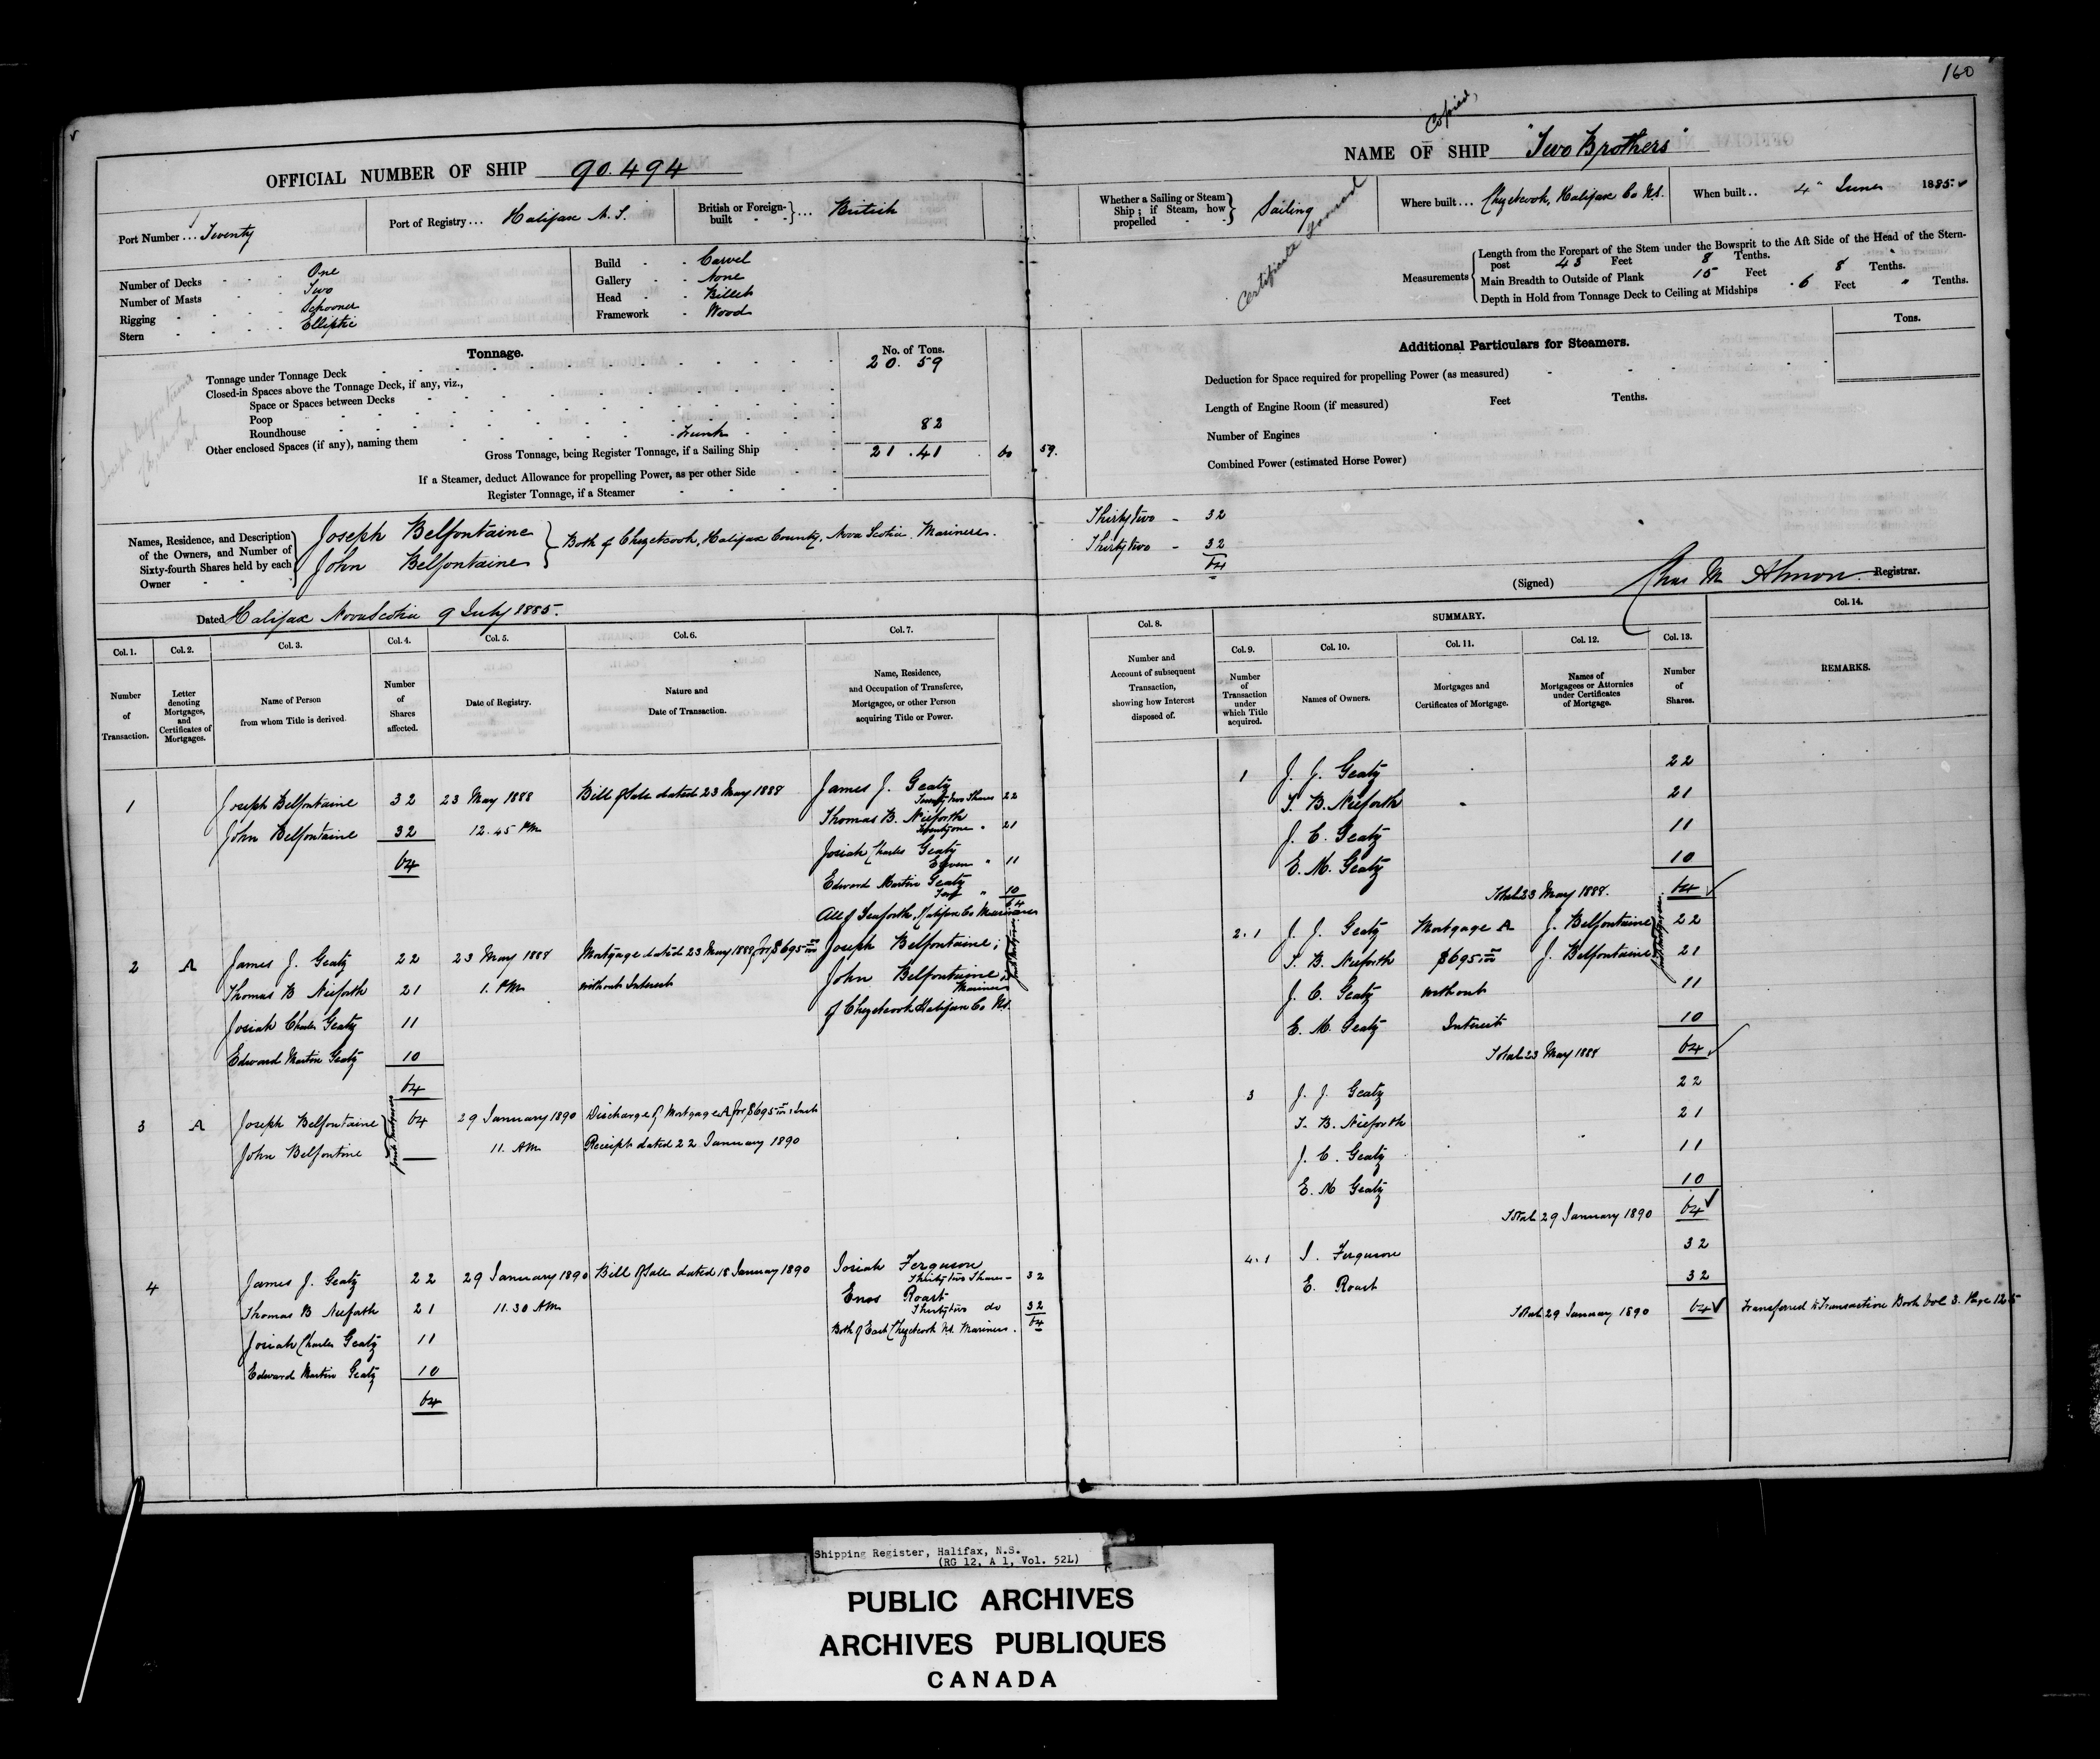 160
Copied,
OFFICIAL NUMBER OF SHIP 90.494
NAME OF SHIP "Two Brothers"
Port Number ... Twenty
Port of Registry ... Halifax N.S.
British or Foreign-built } ... British
Whether a Sailing or Steam Ship; if Steam, how propelled } Sailing
Where built ... Chezetcook, Halifax Co NS.
When built .. 4" June 1885.
Certificate
Number of Decks - - - One
Number of Masts - - - Two
Rigging - - - Schooner
Stern - - - Elliptic
Build - - Carvel
Gallery - - None
Head - - Billet
Framework - Wood
Measurements { Length from the Forepart of the Stem under the Bowsprit to the Aft Side of the Head of the Stern-
post 43 Feet 8 Tenths.
Main Breadth to Outside of Plank 15 Feet 8 Tenths.
Depth in Hold from Tonnage Deck to Ceiling at Midships 6 Feet " Tenths.
Tonnage.
No. of Tons.
Tonnage under Tonnage Deck 20.59
Closed-in Spaces above the Tonnage Deck, if any, viz.,
Space or Spaces between Decks
Poop
Roundhouse
Other enclosed Spaces (if any), naming them Trunk 82
Gross Tonnage, being Register Tonnage, if a Sailing Ship 21.41 60 59.
If a Steamer, deduct Allowance for propelling Power, as per other Side
Register Tonnage, if a Steamer
Joseph Belfontaine
Chezetcook
NS
Additional Particulars for Steamers.
Tons.
Deduction for Space required for propelling Power (as measured)
Length of Engine Room (if measured) Feet Tenths.
Number of Engines
Combined Power (estimated Horse Power)
Names, Residence, and Description of the Owners, and Number of Sixty-fourth Shares held by each Owner
Joseph Belfontaine
John Belfontaine
} Both of Chezetcook, Halifax County, Nova Scotia. Mariners.
Thirty two - 32
Thirty two - 32
64
(Signed) Chas M Almon. Registrar.
Dated Halifax Nova Scotia 9 July 1885.
Col. 1. Col. 2. Col. 3. Col. 4. Col. 5. Col. 6. Col. 7.
Number of Transaction.
Letter denoting Mortgages, and Certificates of Mortgages.
Name of Person from whom Title is derived.
Number of Shares affected.
Date of Registry.
Nature and Date of Transaction.
Name, Residence, and Occupation of Transferee, Mortgagee, or other Person acquiring Title or Power.
Col. 8.
Number and Account of subsequent Transaction, showing how Interest disposed of.
SUMMARY.
Col. 9. Col. 10. Col. 11. Col. 12. Col. 13. Col. 14.
Number of Transaction under which Title acquired.
Names of Owners.
Mortgages and Certificates of Mortgage.
Names of Mortgagees or Attornies under Certificates of Mortgage.
Number of Shares.
REMARKS.
1 Joseph Belfontaine 32 23 May 1888 Bill of Sale dated 23 May 1888 James J. Geatz
Twenty two Shares 22
John Belfontaine 32 12.45 PM Thomas B. Nieforth
Twenty one " 21
64
Josiah Charles Geatz
Eleven " 11
Edward Martin Geatz
Ten " 10
64
All of Seaforth, Halifax Co Mariners
2 A James J. Geatz 22 23 May 1888 Mortgage dated 23 May 1888 for $695 00/100 Joseph Belfontaine;
Thomas B Nieforth 21 1. PM without Interest John Belfontaine;
Mariners
Josiah Charles Geatz 11 of Chezetcook Halifax Co NS.
Joint Mortgagees
Edward Martin Geatz 10
64
3 A Joseph Belfontaine 64 29 January 1890 Discharge of Mortgage A for $695 00/100
John Belfontine 11. AM Receipt dated 22 January 1890
Joint Mortgagees
4 James J. Geatz 22 29 January 1890 Bill of Sale dated 18 January 1890 Josiah Ferguson
Thirty two Shares - 32
Thomas B Nieforth 21 11.30 AM Enos Roast
Thirty two do 32
64
Josiah Charles Geatz 11 Both of East Chezetcook NS. Mariners.
Edward Martin Geatz 10
64
1 J. J. Geatz 22
T. B. Nieforth 21
J. C. Geatz 11
E. M. Geatz 10
Total 23 May 1888. 64
2.1 J. J. Geatz Mortgage A J. Belfontaine 22
T. B. Nieforth $695 00/100 J. Belfontaine 21
Joint Mortgagees
J. C. Geatz without 11
E. M. Geatz Interest 10
Total 23 May 1888 64
3 J. J. Geatz 22
T. B. Nieforth 21
J. C. Geatz 11
E. M Geatz 10
Total 29 January 1890 64
4.1 J. Ferguson 32
E. Roast 32
Total 29 January 1890 64 Transferred to Transaction Book Vol 3. Page 125
Shipping Register, Halifax, N.S.
(RG 12, A 1, Vol. 52L)
PUBLIC ARCHIVES
ARCHIVES PUBLIQUES
CANADA